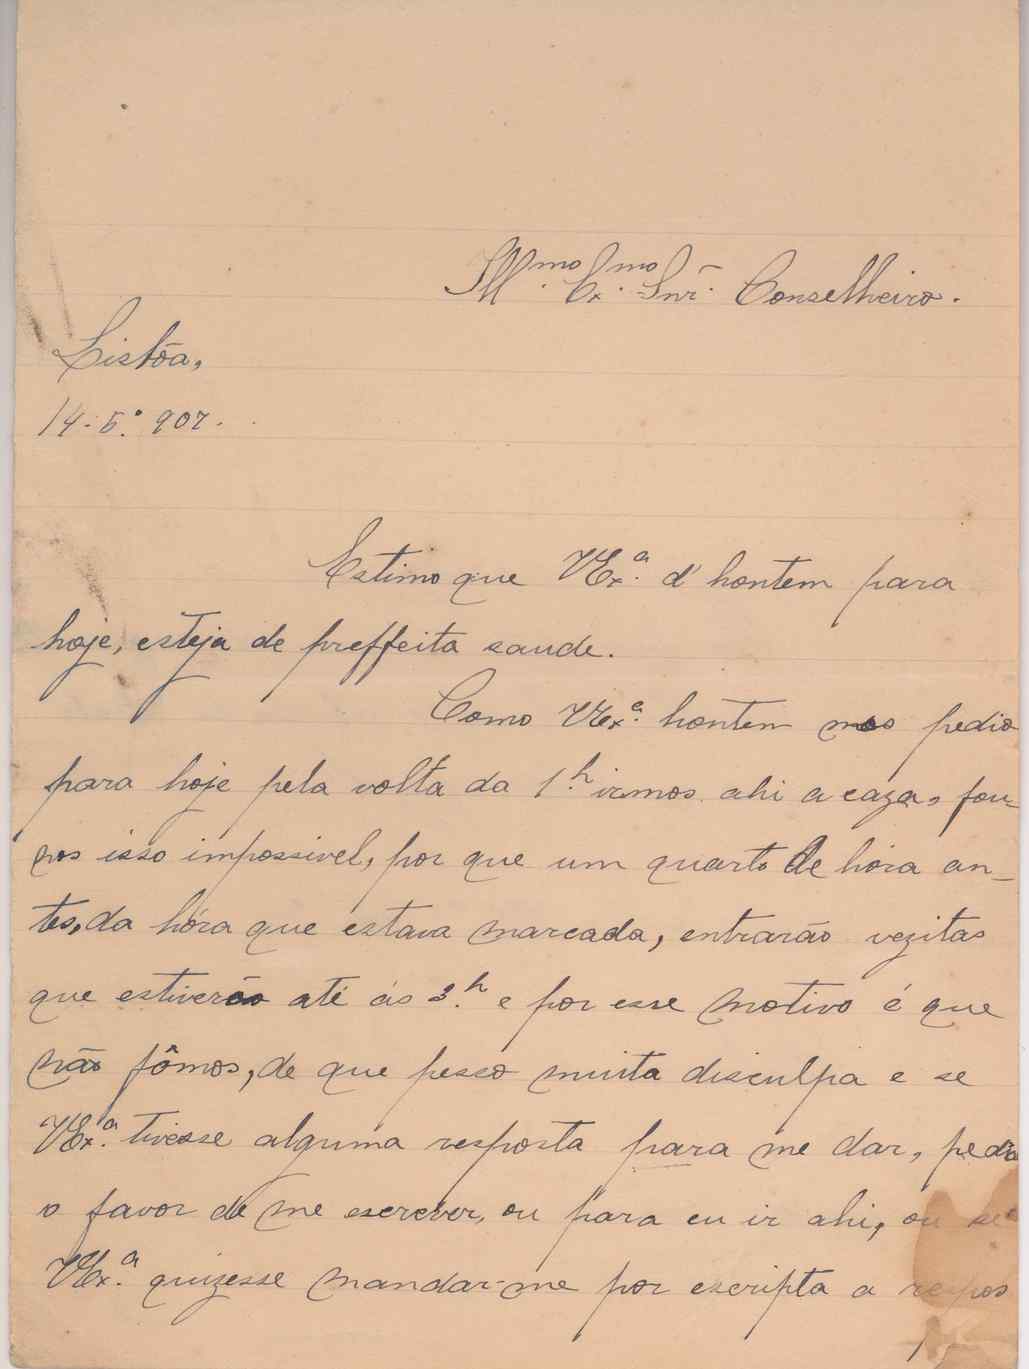 Ill.mo Ex.mo Snr. Conselheiro.
Lisbôa,
14-5.º 907.
Estimo que VEx.ª d'hontem para
hoje, esteja de preffeita saude.
Como VEx.ª hontem nos pedio
para hoje pela volta da 1.h irmos ahi a caza, foi-
nos isso impossivel, por que um quarto de hóra an-
tes, da hóra que estava marcada, entrarão vezitas
que estiverão até ás 3.h e por esse motivo é que
não fômos, de que pesso muita disculpa e se
VEx.ª tivesse alguma resposta para me dar, pedia
o favor de me escrever, ou para eu ir ahi, ou se
VEx.ª quizesse mandar-me por escripta a respos